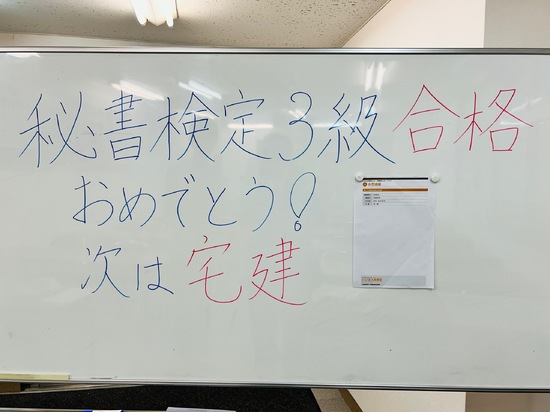 秘書検定3級合格
おめでとう!
次は宅建